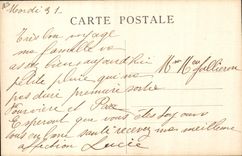 Mardi 21
CARTE POSTALE
Très bon voyage
ma famille va
assez bien aujourd'hui
petite pluie qui ne
pas première sortie
Fourvière et Parc
Esperant que vous êtes toujours
tous en bonne santé recevez ma meilleure
affection Lucie
Mme